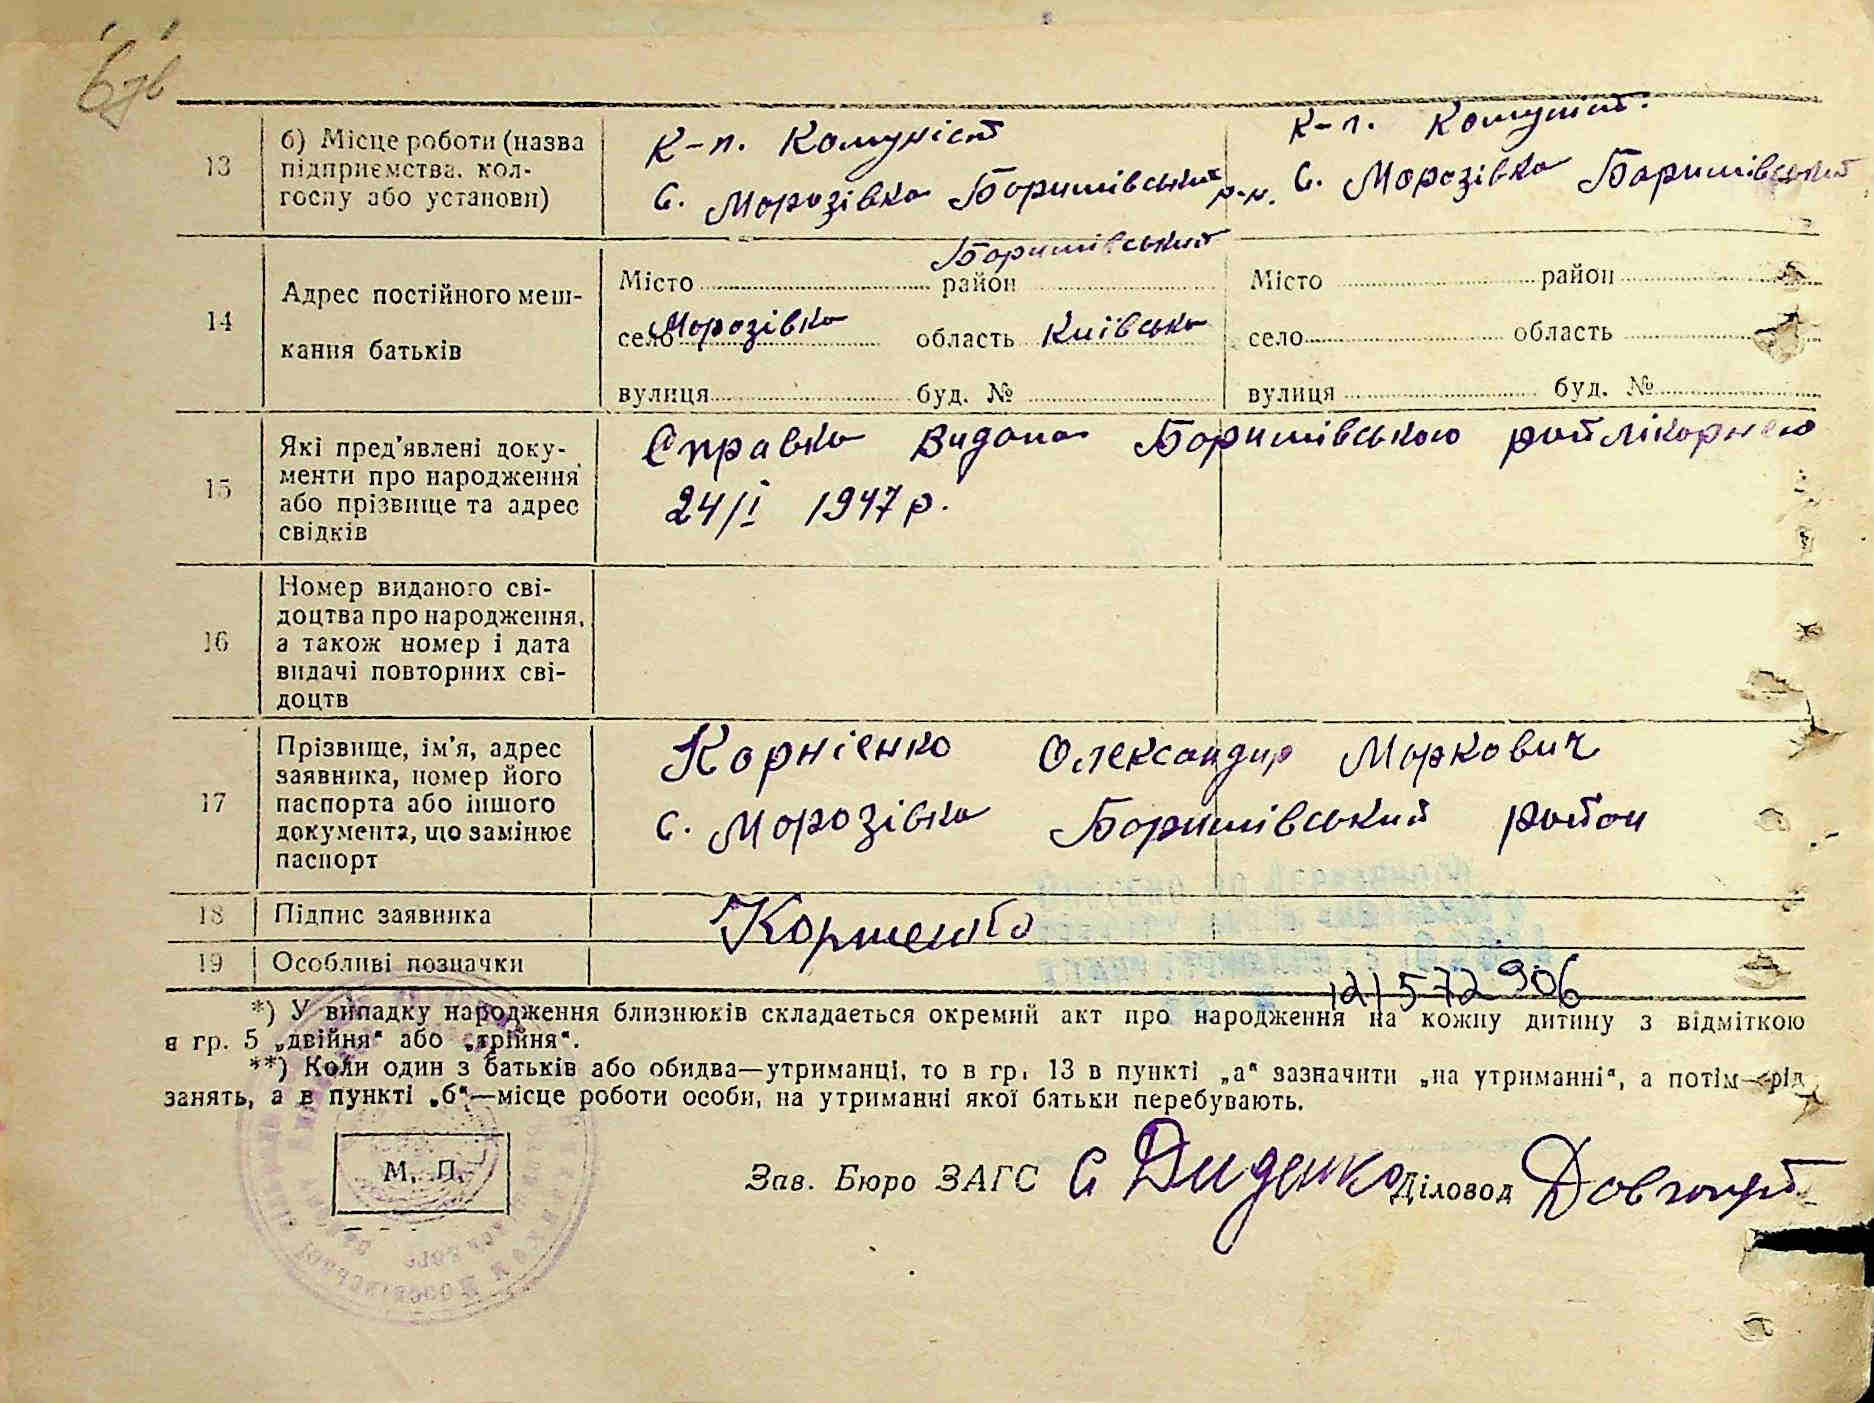 13
б) Місце роботи (назва
підприємства, кол-
госпу або установи)
К-п. Комуніст
С. Морозівка Баришівський р-н.
К-п. Комуніст.
С. Морозівка Баришівський
14
Адрес постійного меш-
кання батьків
Баришівський
Місто район
село Морозівка область Київська
вулиця буд. №
Місто район
село область
вулиця буд. №
15
Які пред'явлені доку-
менти про народження
або прізвище та адрес
свідків
Справка Видана Баришівською райлікарнею
24/I 1947 р.
16
Номер виданого сві-
доцтва про народження,
а також номер і дата
видачі повторних сві-
доцтв
17
Прізвище, ім'я, адрес
заявника, номер його
паспорта або іншого
документа, що замінює
паспорт
Корнієнко Олександир Маркович
С. Морозівка Баришівський район
18
Підпис заявника
Корниенко
19
Особливі позначки
121572906
*) У випадку народження близнюків складається окремий акт про народження на кожну дитину з відміткою
в гр. 5 „двійня“ або „трійня“.
**) Коли один з батьків або обидва—утриманці, то в гр. 13 в пункті „а“ зазначити „на утриманні“, а потім—рід
занять, а в пункті „б“—місце роботи особи, на утриманні якої батьки перебувають.
М. П.
Зав. Бюро ЗАГС С Диденко Діловод